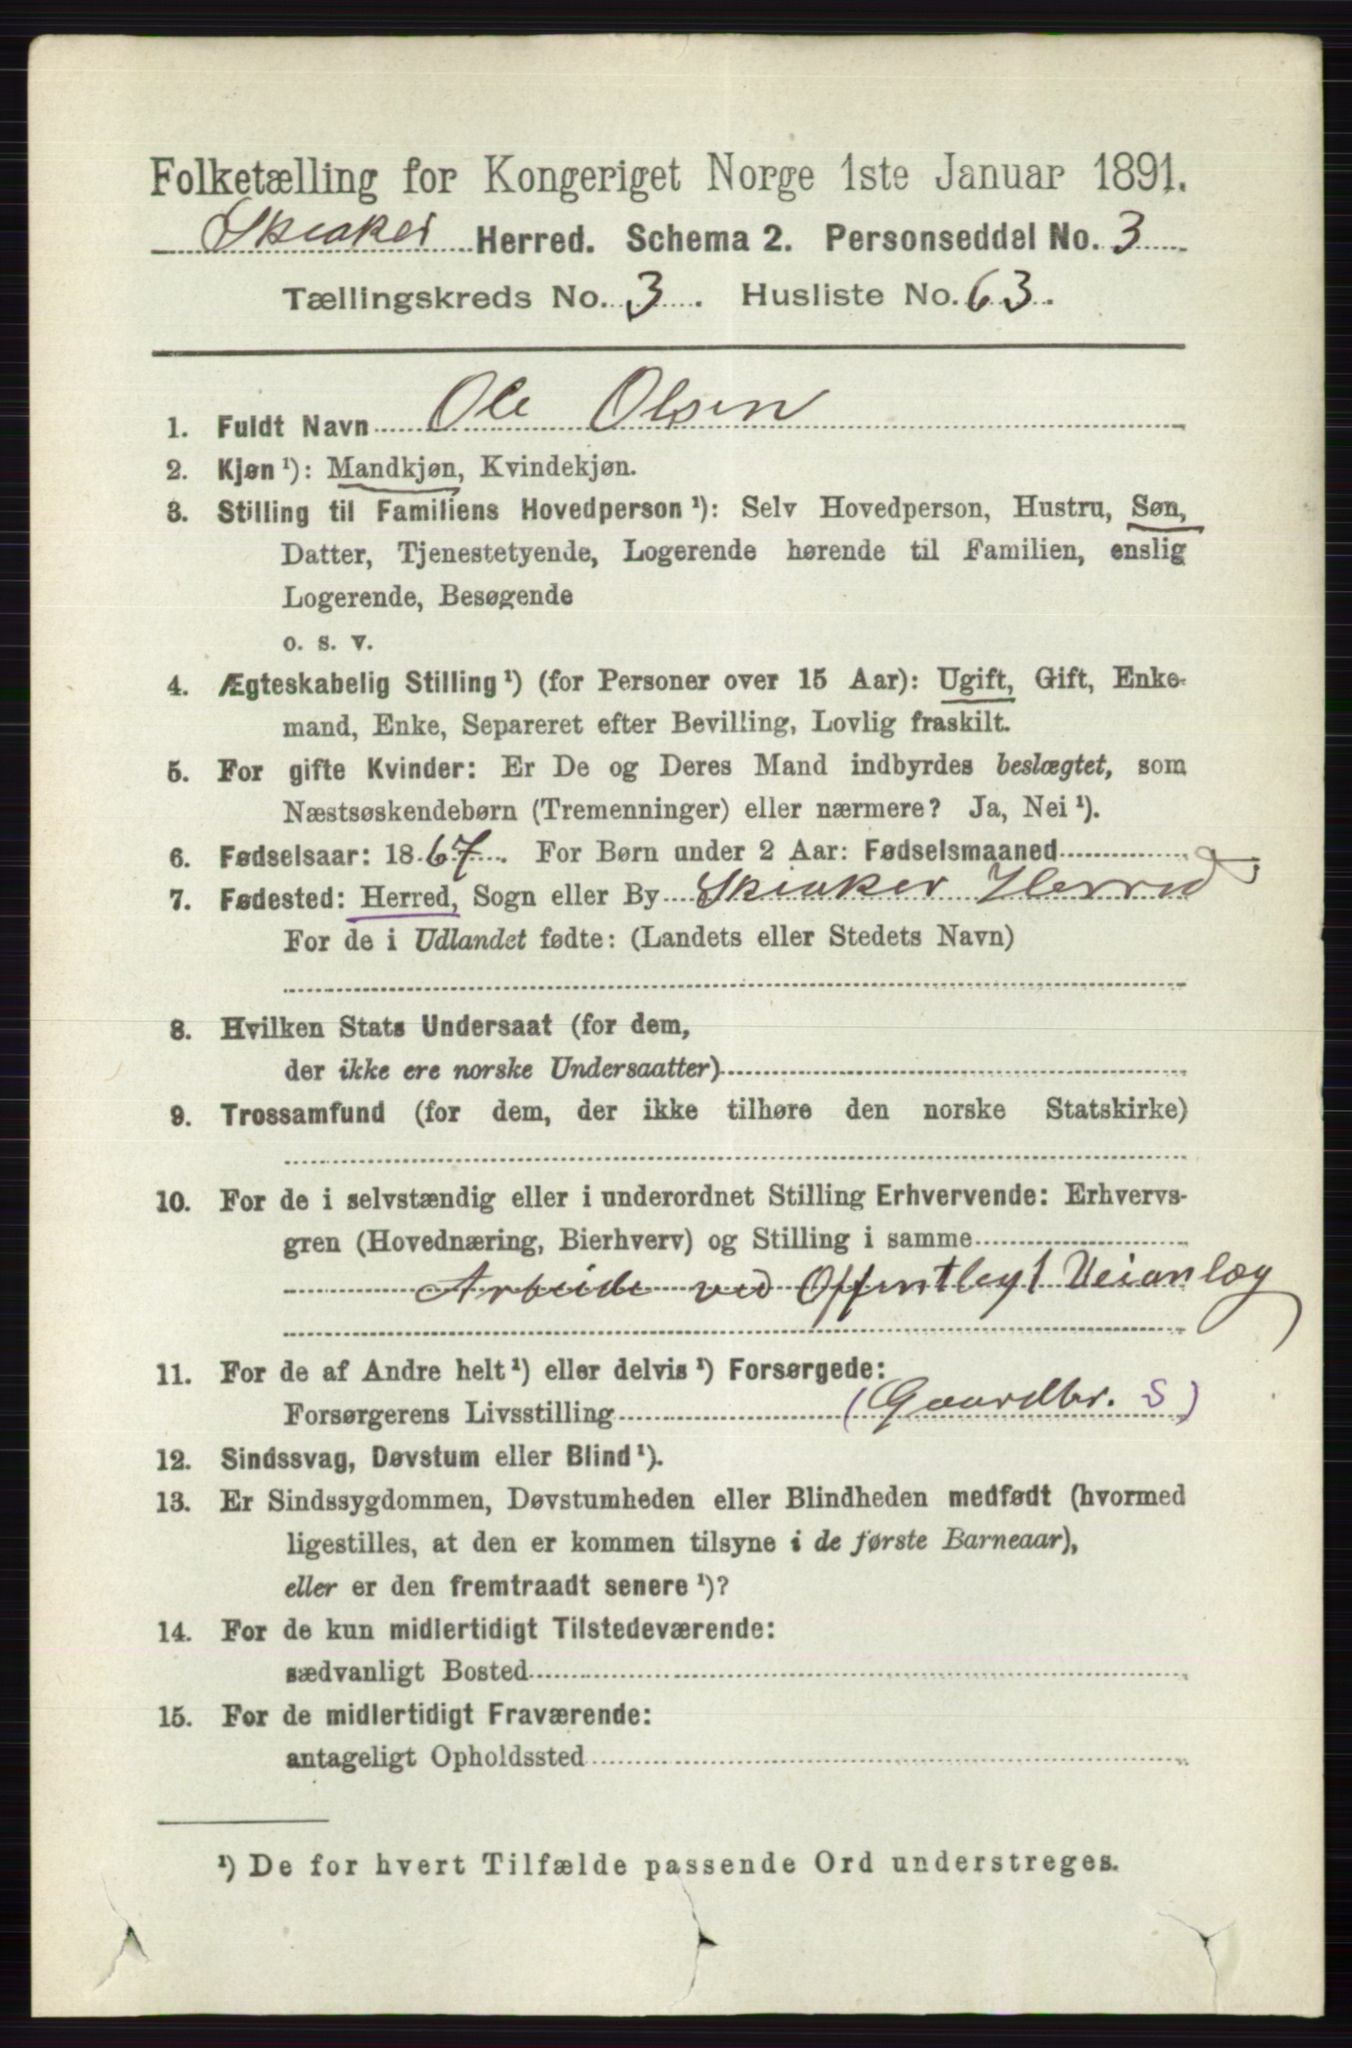 Folketælling for Kongeriget Norge 1ste Januar 1891.
Skiaker Herred. Schema 2. Personseddel No. 3
Tællingskreds No. 3. Husliste No. 63.
1. Fuldt Navn Ole Olsen
2. Kjøn ¹): Mandkjøn, Kvindekjøn.
3. Stilling til Familiens Hovedperson ¹): Selv Hovedperson, Hustru, Søn,
Datter, Tjenestetyende, Logerende hørende til Familien, enslig
Logerende, Besøgende
o. s. v.
4. Ægteskabelig Stilling ¹) (for Personer over 15 Aar): Ugift, Gift, Enke-
mand, Enke, Separeret efter Bevilling, Lovlig fraskilt.
5. For gifte Kvinder: Er De og Deres Mand indbyrdes beslægtet, som
Næstsøskendebørn (Tremenninger) eller nærmere? Ja, Nei ¹).
6. Fødselsaar: 1867. For Børn under 2 Aar: Fødselsmaaned
7. Fødested: Herred, Sogn eller By Skiaker Herred
For de i Udlandet fødte: (Landets eller Stedets Navn)
8. Hvilken Stats Undersaat (for dem,
der ikke ere norske Undersaatter)
9. Trossamfund (for dem, der ikke tilhøre den norske Statskirke)
10. For de i selvstændig eller i underordnet Stilling Erhvervende: Erhvervs-
gren (Hovednæring, Bierhverv) og Stilling i samme
Arbeide ved Offentlegt Veianlæg
11. For de af Andre helt ¹) eller delvis ¹) Forsørgede:
Forsørgerens Livsstilling (Gaardbr. S)
12. Sindssvag, Døvstum eller Blind ¹).
13. Er Sindssygdommen, Døvstumheden eller Blindheden medfødt (hvormed
ligestilles, at den er kommen tilsyne i de første Barneaar),
eller er den fremtraadt senere ¹)?
14. For de kun midlertidigt Tilstedeværende:
sædvanligt Bosted
15. For de midlertidigt Fraværende:
antageligt Opholdssted
¹) De for hvert Tilfælde passende Ord understreges.